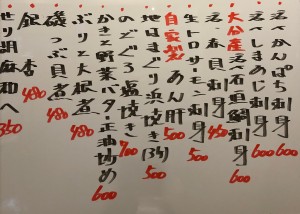 活〆かんぱち刺身 600
活〆しまあじ刺身 600
大分産 活〆石垣鯛刺身 600
活〆春貝刺身 450
生トロサーモン刺身 500
自家製 あん肝 500
地はまぐり浜焼き(3ケ) 500
のどぐろ塩焼き 700
かきと野菜バター正油炒め 600
ぶりと大根煮 480
磯つぶ貝煮 480
銀杏 480
せり胡麻和へ 350